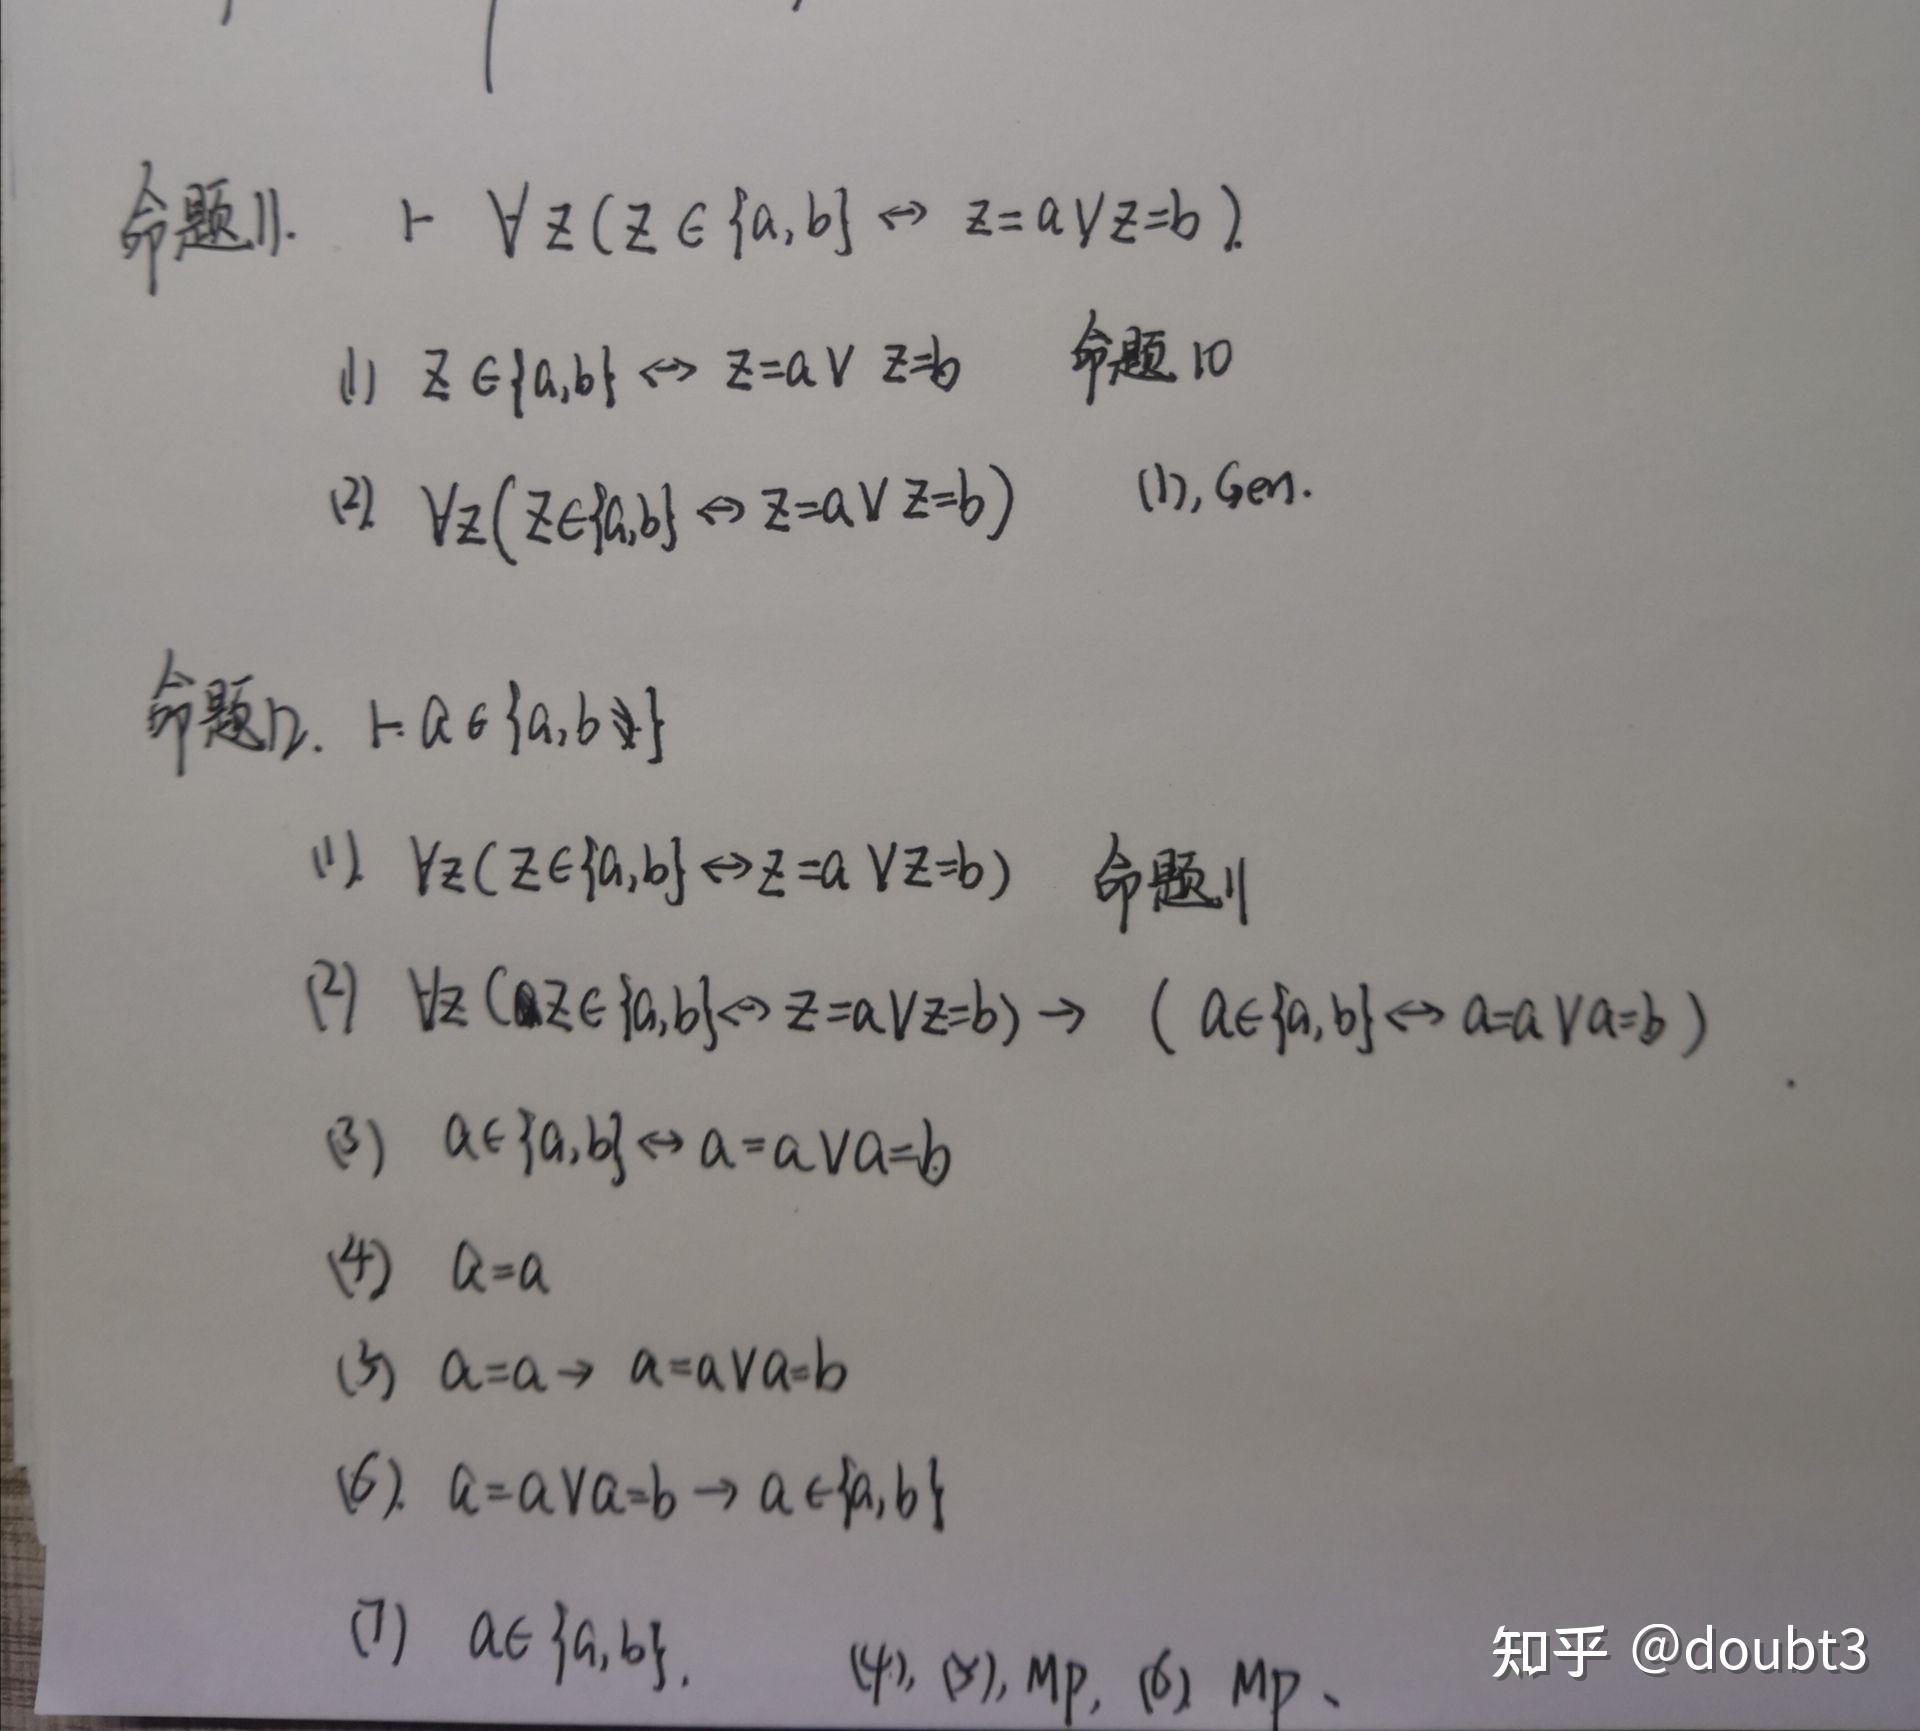 命题11. ⊢ ∀z(z∈{a,b} ↔ z=a∨z=b).
(1) z∈{a,b} ↔ z=a∨ z=b 命题10
(2) ∀z(z∈{a,b} ↔ z=a∨z=b) (1), Gen.
命题12. ⊢ a∈{a,b}
(1) ∀z(z∈{a,b}↔z=a∨z=b) 命题11
(2) ∀z(z∈{a,b}↔z=a∨z=b)→ (a∈{a,b}↔a=a∨a=b)
(3) a∈{a,b}↔a=a∨a=b
(4) a=a
(5) a=a→ a=a∨a=b
(6). a=a∨a=b→a∈{a,b}
(7) a∈{a,b}. (4), (5), Mp, (6) Mp、
知乎 @doubt3